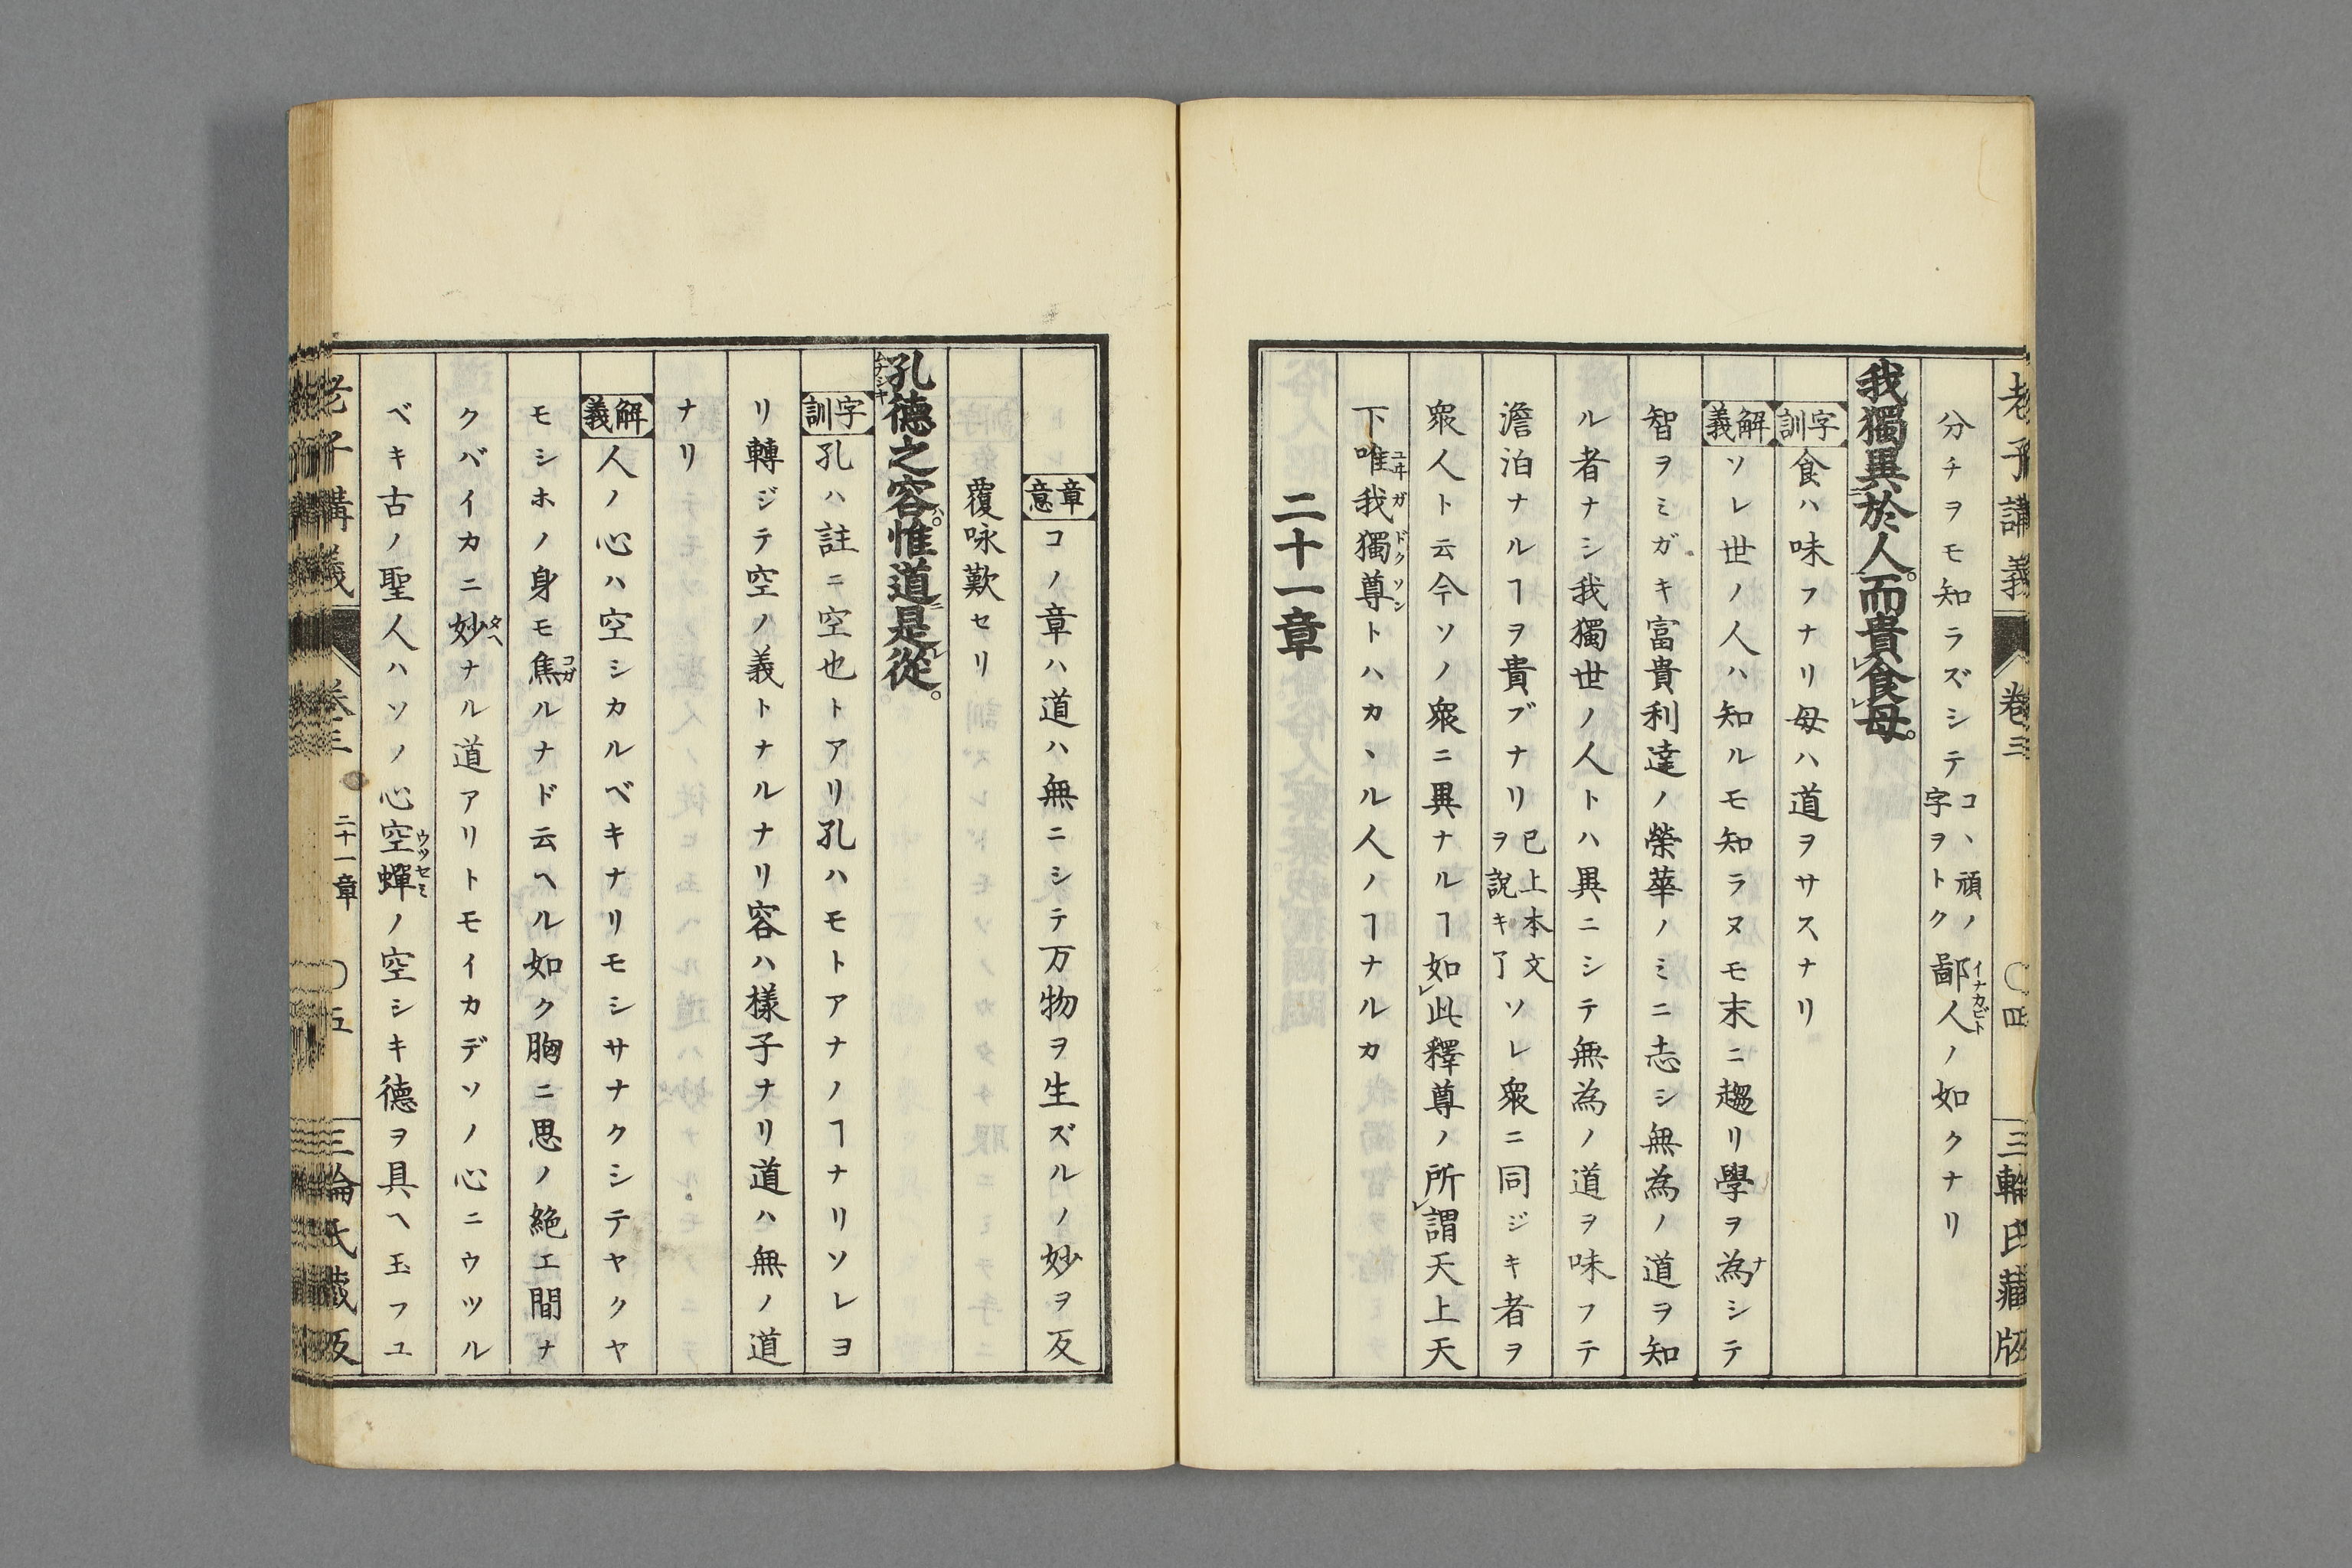 老子講義 卷三 〇四 三輪氏藏版
分チヲモ知ラズシテコヽ頑ノ字ヲトク鄙人ノ如クナリ
イナカビト
我獨異於人。而貴食母。
字訓 食ハ味フナリ母ハ道ヲサスナリ
解義 ソレ世ノ人ハ知ルモ知ラヌモ末ニ趨リ學ヲ為シテ
ナ
智ヲミガキ富貴利達ノ榮華ノミニ志シ無為ノ道ヲ知
ル者ナシ我獨世ノ人トハ異ニシテ無為ノ道ヲ味フテ
澹泊ナルヿヲ貴ブナリ已上本文ヲ說キ了ソレ衆ニ同ジキ者ヲ
衆人ト云今ソノ衆ニ異ナルヿ如レ此釋尊ノ所レ謂天上天
下唯我獨尊トハカヽル人ノヿナルカ
ユヰガドクソン
二十一章
章意 コノ章ハ道ハ無ニシテ万物ヲ生ズルノ妙ヲ反
覆咏歎セリ
孔德之容。惟道是從。
ムナシキ ハ ニ レ
字訓 孔ハ註ニ空也トアリ孔ハモトアナノヿナリソレヨ
リ轉ジテ空ノ義トナルナリ容ハ樣子ナリ道ハ無ノ道
ナリ
解義 人ノ心ハ空シカルベキナリモシサナクシテヤクヤ
モシホノ身モ焦ルナド云ヘル如ク胸ニ思ノ絕エ間ナ
コガ
クバイカニ妙ナル道アリトモイカデソノ心ニウツル
タヘ
ベキ古ノ聖人ハソノ心空蟬ノ空シキ德ヲ具ヘ玉フユ
ウツセミ
老子講義 卷三 二十一章 〇五 三輪氏藏版